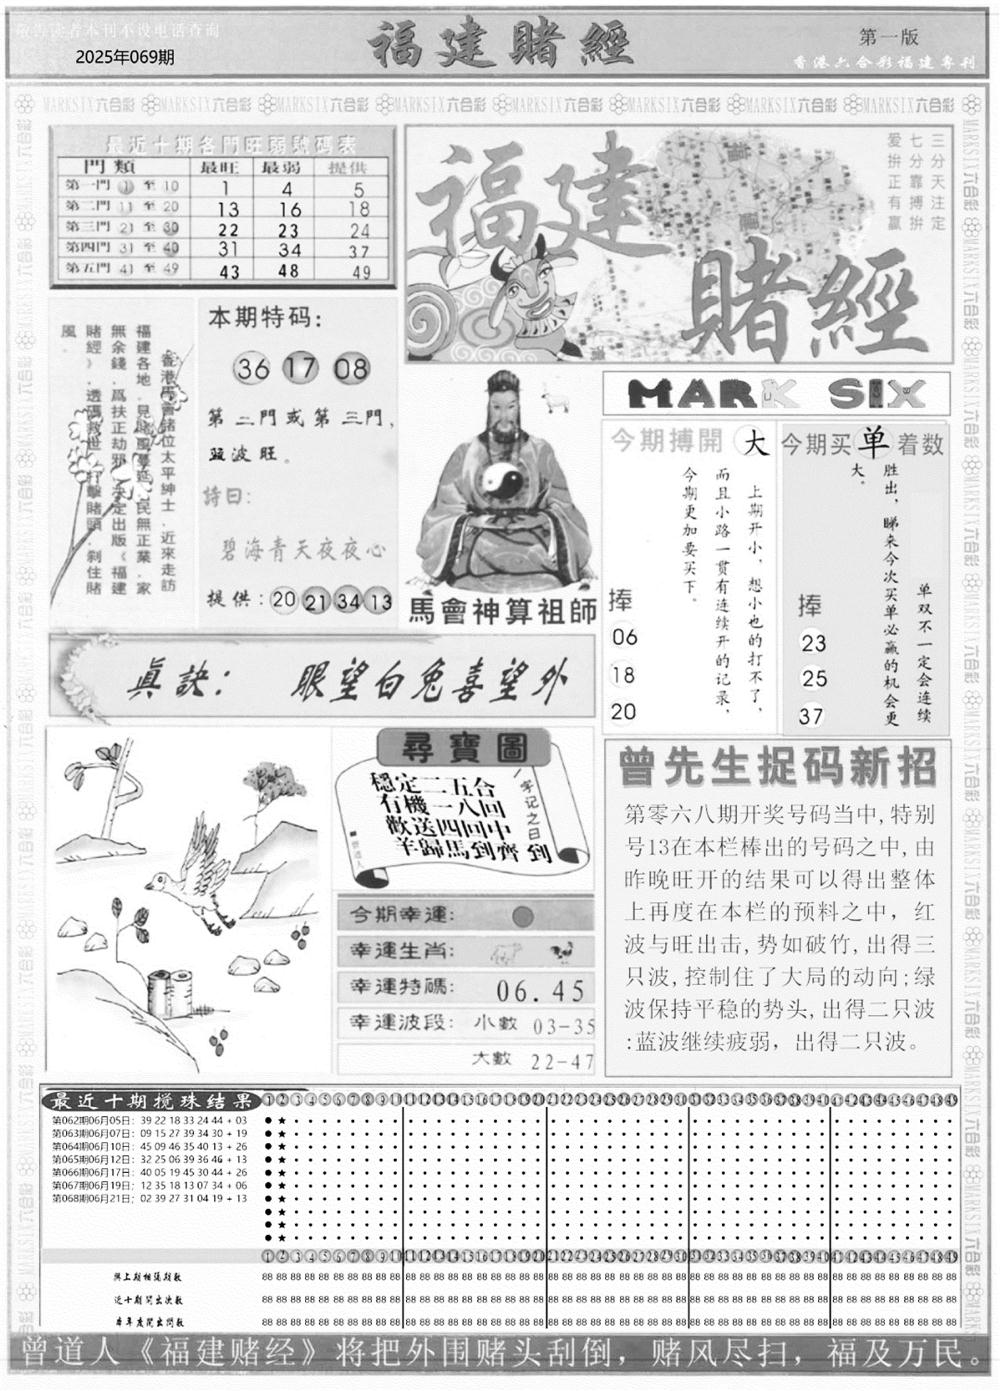 敬告读者本刊不设电话查询
2025年069期
福建賭經
第一版
香港六合彩福建專刊
MARKSIX六合彩 MARKSIX六合彩 MARKSIX六合彩 MARKSIX六合彩 MARKSIX六合彩 MARKSIX六合彩 MARKSIX六合彩 MARKSIX六合彩
最近十期各門旺弱號碼表
門類 最旺 最弱 提供
第一門 1 至 10 1 4 5
第二門 11 至 20 13 16 18
第三門 21 至 30 22 23 24
第四門 31 至 40 31 34 37
第五門 41 至 49 43 48 49
福建
賭經
三分天注定
七分靠搏拚
爱拚正有赢
香港馬會諸位太平紳士．近來走訪
福建各地．見賭風蔓延．民無正業．家
無余錢．爲扶正劫邪．決定出版《福建
賭經》．透碼救世．打擊賭頭．剎住賭
風．
本期特码：
36 17 08
第二門或第三門，
蓝波旺。
詩曰：
碧海青天夜夜心
提供：20 21 34 13
馬會神算祖師
MARK SIX
今期搏開 大
上期开小，想小也的打不了，
而且小路一贯有连续开的记录，
今期更加要买下。
捧
06
18
20
今期买单着数
单双不一定会连续
胜出，睇来今次买单必赢的机会更
大。
捧
23
25
37
眞訣： 眼望白兔喜望外
尋寶圖
穩定二五合
有機一八回
歡送四回中
羊歸馬到齊
一字记之曰
到
■曾道人
今期幸運：
幸運生肖：
幸運特碼： 06.45
幸運波段：小數 03-35
大數 22-47
曾先生捉码新招
第零六八期开奖号码当中,特别
号13在本栏棒出的号码之中,由
昨晚旺开的结果可以得出整体
上再度在本栏的预料之中，红
波与旺出击,势如破竹,出得三
只波,控制住了大局的动向;绿
波保持平稳的势头,出得二只波
:蓝波继续疲弱，出得二只波。
最近十期搅珠结果
第062期06月05日：39 22 18 33 24 44 + 03
第063期06月07日：09 15 27 39 34 30 + 19
第064期06月10日：45 09 46 35 40 13 + 26
第065期06月12日：32 25 06 39 36 46 + 13
第066期06月17日：40 05 19 45 30 44 + 26
第067期06月19日：12 35 18 13 07 34 + 06
第068期06月21日：02 39 27 31 04 19 + 13
與上期相隔期数
近十期開出次数
本年度開出期数
曾道人《福建赌经》将把外围赌头刮倒，赌风尽扫，福及万民。